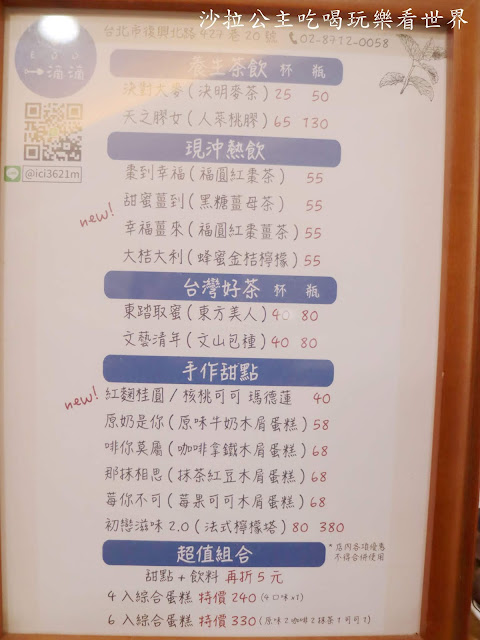 沙拉公主吃喝玩樂看世界
台北市復興北路427巷20號 02-8712-0058
滴滴
@ici3621m
養生茶飲 杯 瓶
決對大麥(決明麥茶) 25 50
天之膠女(人蔘桃膠) 65 130
現沖熱飲
棗到幸福(福圓紅棗茶) 55
new!
甜蜜薑到(黑糖薑母茶) 55
幸福薑來(福圓紅棗薑茶) 55
大桔大利(蜂蜜金桔檸檬) 55
台灣好茶 杯 瓶
東踏取蜜(東方美人) 40 80
文藝清年(文山包種) 40 80
手作甜點
new!
紅麴桂圓/核桃可可 瑪德蓮 40
原奶是你(原味牛奶木屑蛋糕) 58
啡你莫屬(咖啡拿鐵木屑蛋糕) 68
那抹相思(抹茶紅豆木屑蛋糕) 68
莓你不可(莓果可可木屑蛋糕) 68
初戀滋味2.0(法式檸檬塔) 80 380
超值組合
*店內各項優惠
不得合併使用
甜點+飲料 再折5元
4入綜合蛋糕 特價240 (4口味x1)
6入綜合蛋糕 特價330 (原味2咖啡2抹茶1可可1)